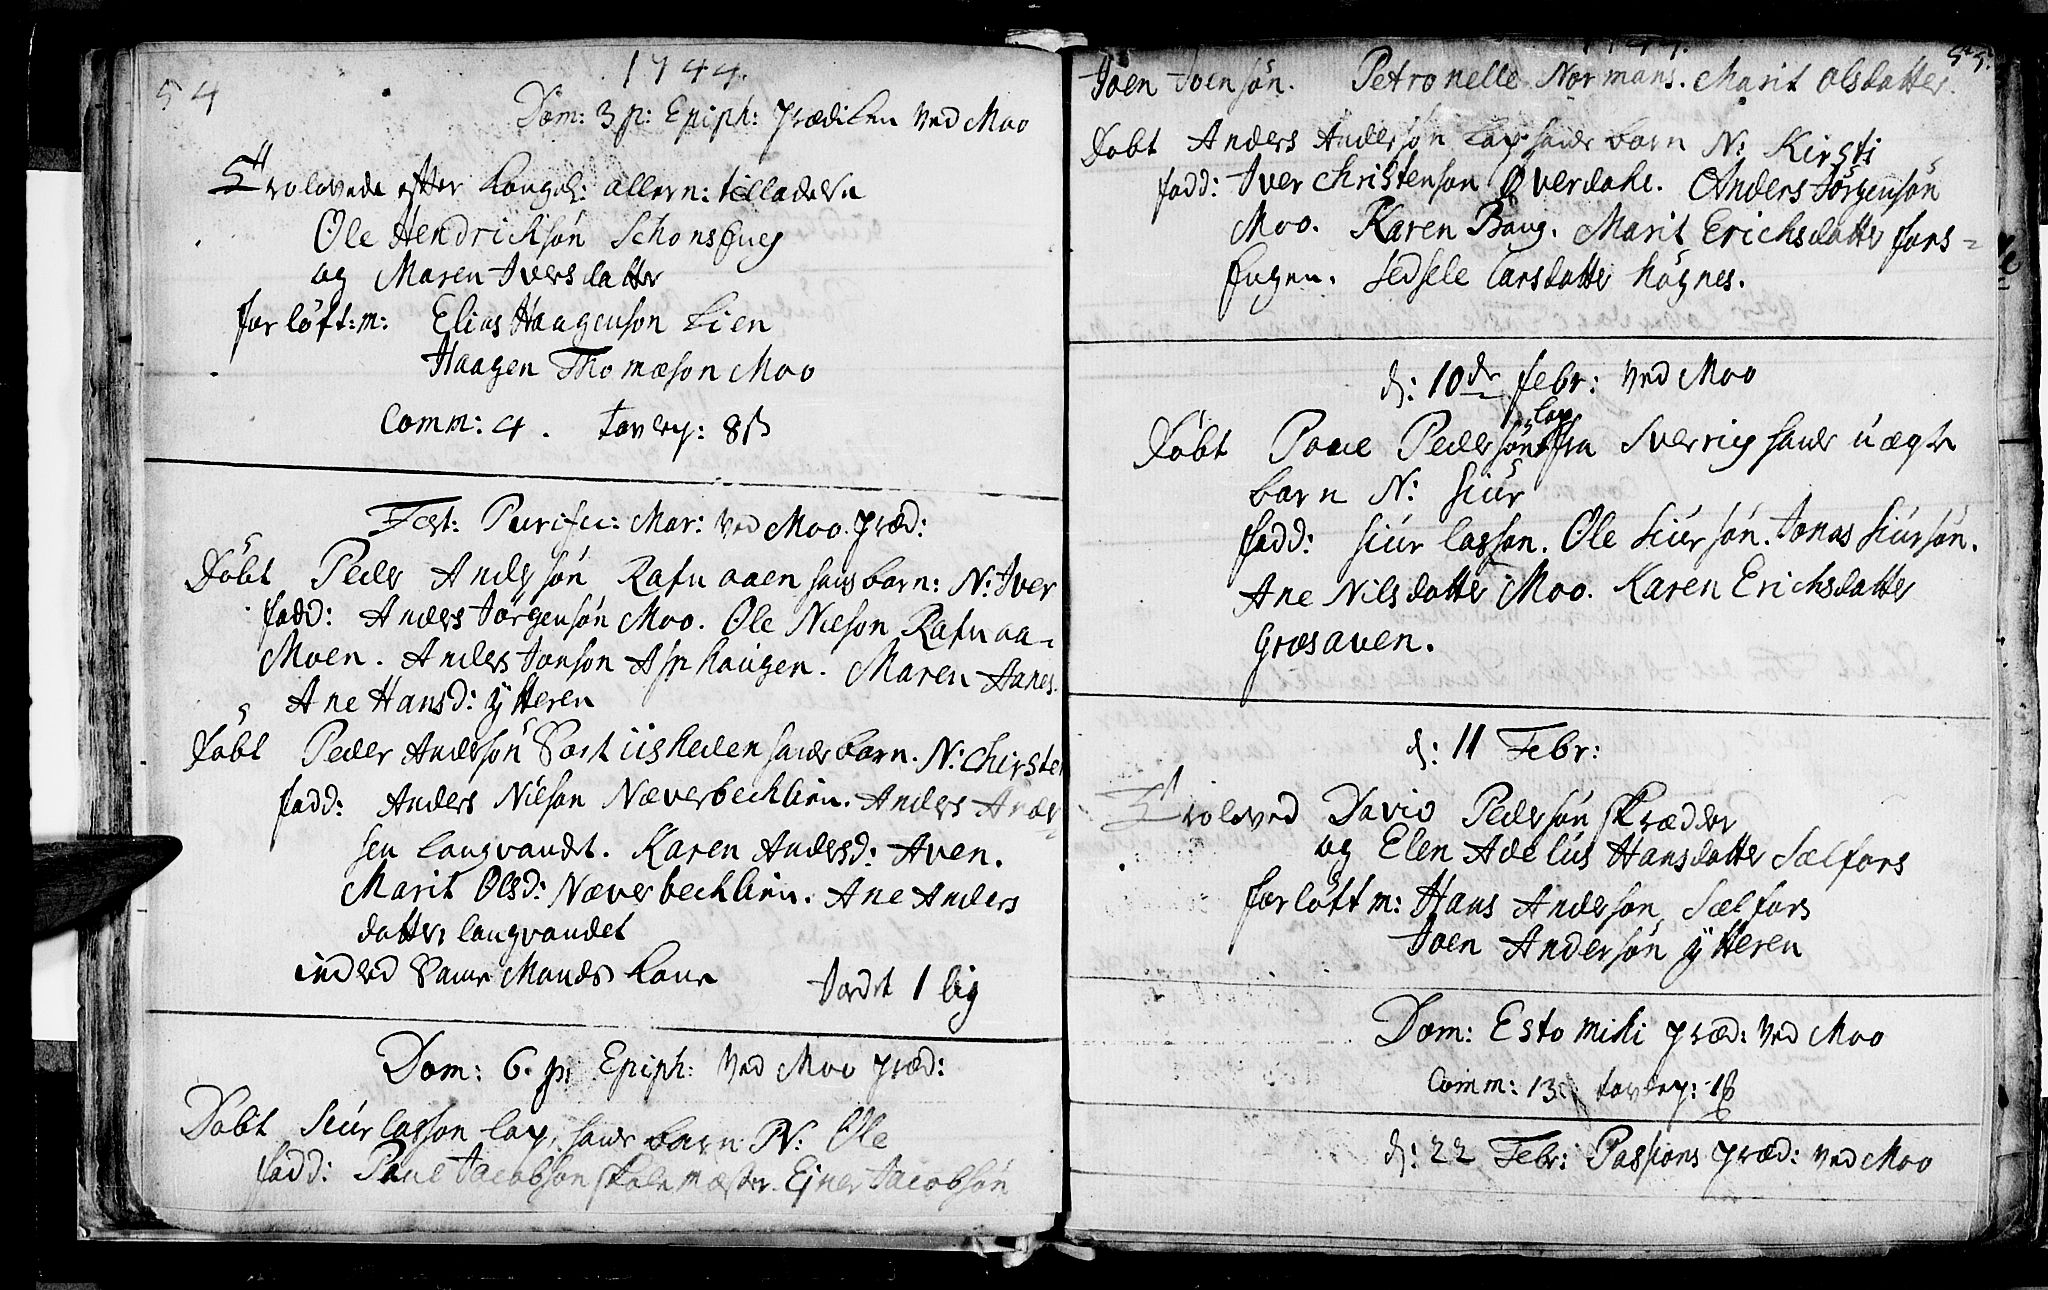 54
1744.
Dom: 3 p: Epiph: prædiken ved Moo
Trolovede efter kongel: allern: tilladelse
Ole Hendrichsøn Schonseng
og Maren Iversdatter
forløft: m: Elias Haagenson Lien
Haagen Thomæson Moo
Comm: 4. tavlep: 8 ß
Fest: Purific: Mar: ved Moo. præd:
Døbt Peder Andersøn Rafnaaen hans barn: N: Iver
fadd: Anders Jørgensøn Moo. Ole Nilson Rafnaa-
Moen. Anders Jonson Asphaugen. Maren Hanes.
Ane Hansd: Ytteren
Døbt Peder Andersøn hans barn. N: Chirsten
fadd: Anders Nilson Næverbechlien. Anders Andr-
sen Langvandt. Karen Andersd: Aven.
Marit Olsd: Næverbechlien. Ane Anders
datter Langvandet
indled Samme Mands Kone Jordet 1 lig
Dom: 6. p: Epiph: ved Moo præd:
Døbt Siur Lasson Lap, hans barn N: Ole
fadd: Paul Jacobson skolemæster. Ejner Jacobsøn
1744.
55.
Joen Joensøn. Petronelle Normans. Marit Olsdatter.
Døbt Anders Andersøn Lap hans barn N: Kirsti
fadd: Iver Christenson Øverdahl. Anders Jørgensøn
Moo. Karen Bang. Marit Erichsdatter fors-
engen. Sedsele Larsdatter Høgnes.
d: 10de febr: ved Moo
Døbt Poue Pedersøn Lap fra Sverrig hans uægte
barn N: Siur
fadd: Siur Lasson. Ole Siursøn. Jonas Siursøn.
Ane Nilsdatter Moo. Karen Erichsdatter
Græsaven.
d: 11 Febr:
Troloved David Pedersøn Skrædder
og Elen Adelus Hansdatter Sælfors
forløft m: Hans Andersøn Sælfors
Joen Andersøn Ytteren
Dom: Esto mihi præd: ved Moo
Comm: 13 tavlep: 18
d: 22 Febr: Passions præd: ved Moo